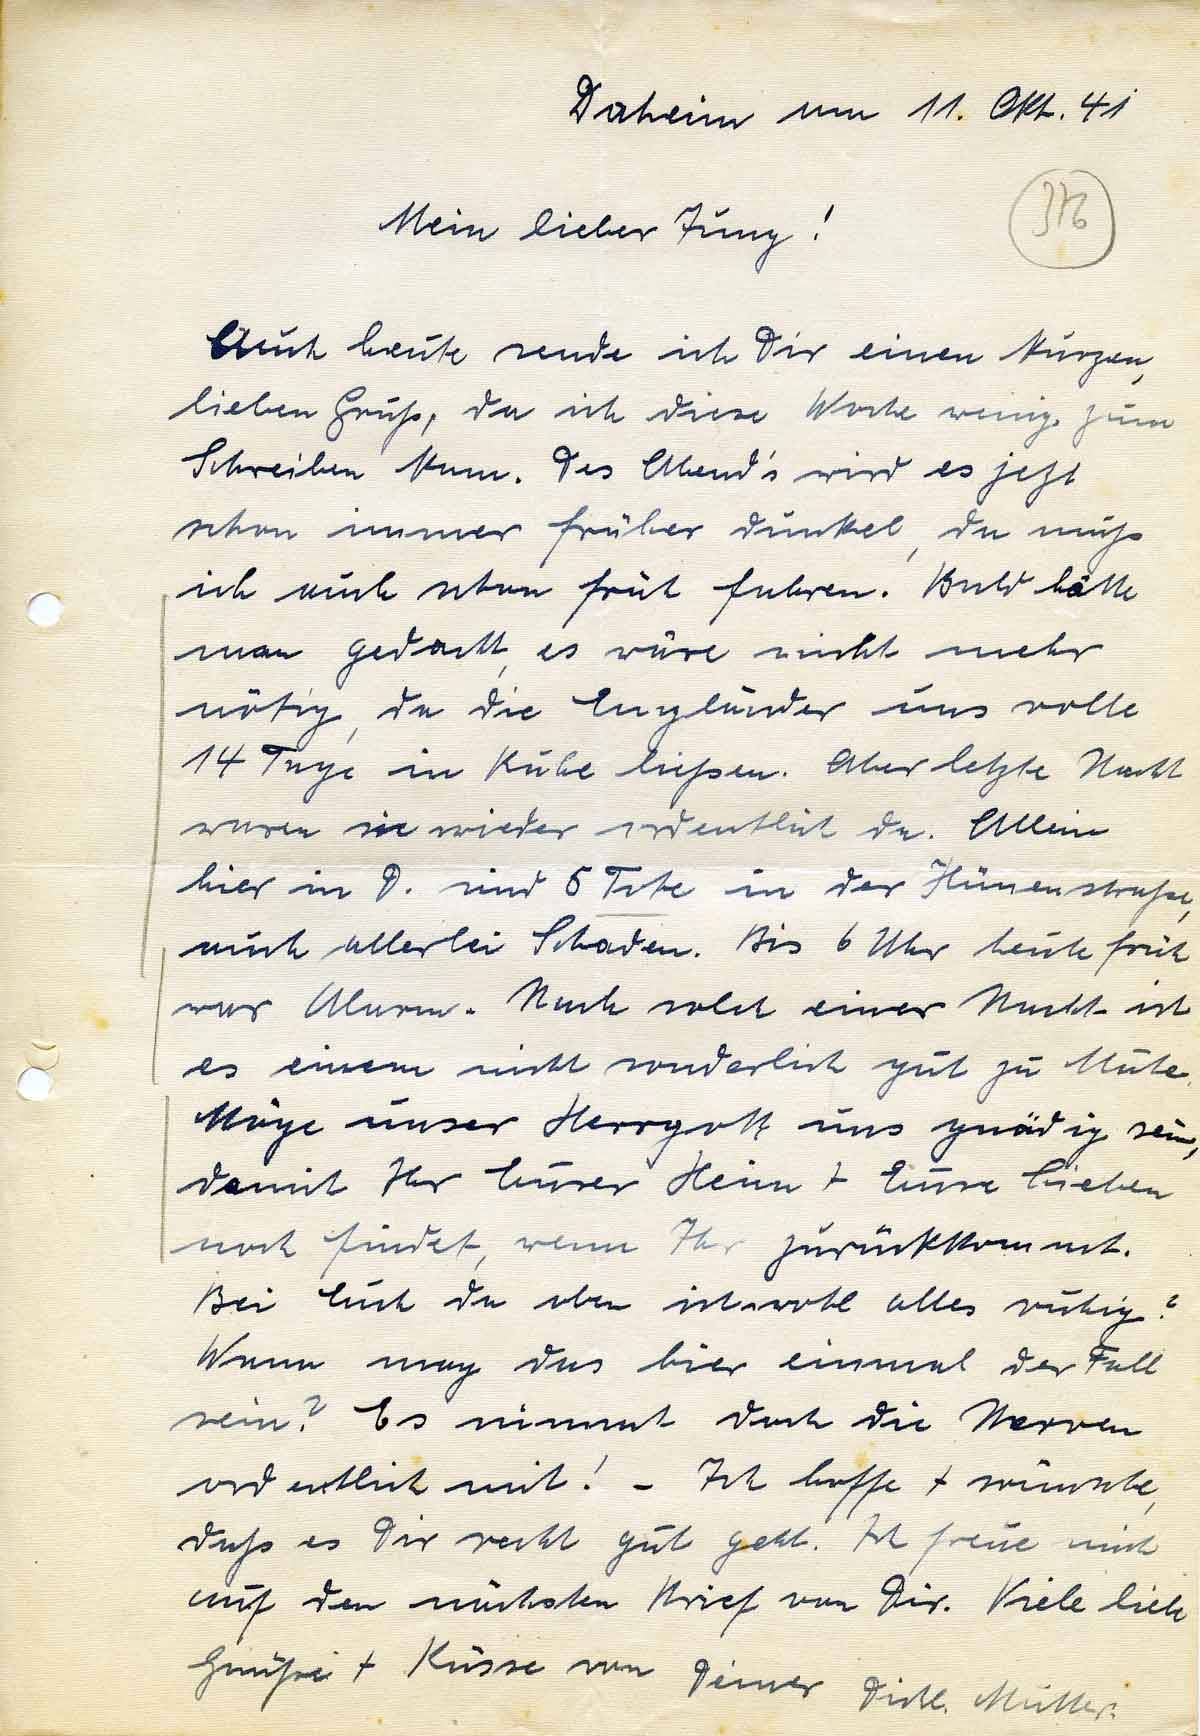 Daheim am 11. Okt. 41
Mein lieber Jung!
Auch heute sende ich Dir einen kurzen,
lieben Gruß, da ich diese Woche wenig zum
Schreiben kam. Des Abend's wird es jetzt
schon immer früher dunkel, da muß
ich auch schon früh fahren. Bald hätte
man gedacht, es wäre nicht mehr
nötig, da die Engländer uns volle
14 Tage in Ruhe ließen. Aber letzte Nacht
waren sie wieder ordentlich da. Allein
hier in D. sind 5 Tote in der Hünenstraße,
auch allerlei Schaden. Bis 6 Uhr heute früh
war Alarm. Nach solch einer Nacht ist
es einem nicht sonderlich gut zu Mute.
Möge unser Herrgott uns gnädig sein,
damit Ihr Euer Heim + Eure Lieben
noch findet, wenn Ihr zurückkommt.
Bei Euch da oben ist wohl alles ruhig?
Wann mag das hier einmal der Fall
sein? Es nimmt doch die Nerven
ordentlich mit! - Ich hoffe + wünsche,
daß es Dir recht gut geht. Ich freue mich
auf den nächsten Brief von Dir. Viele liebe
Grüße + Küsse von Deiner Dichl. Mutter.